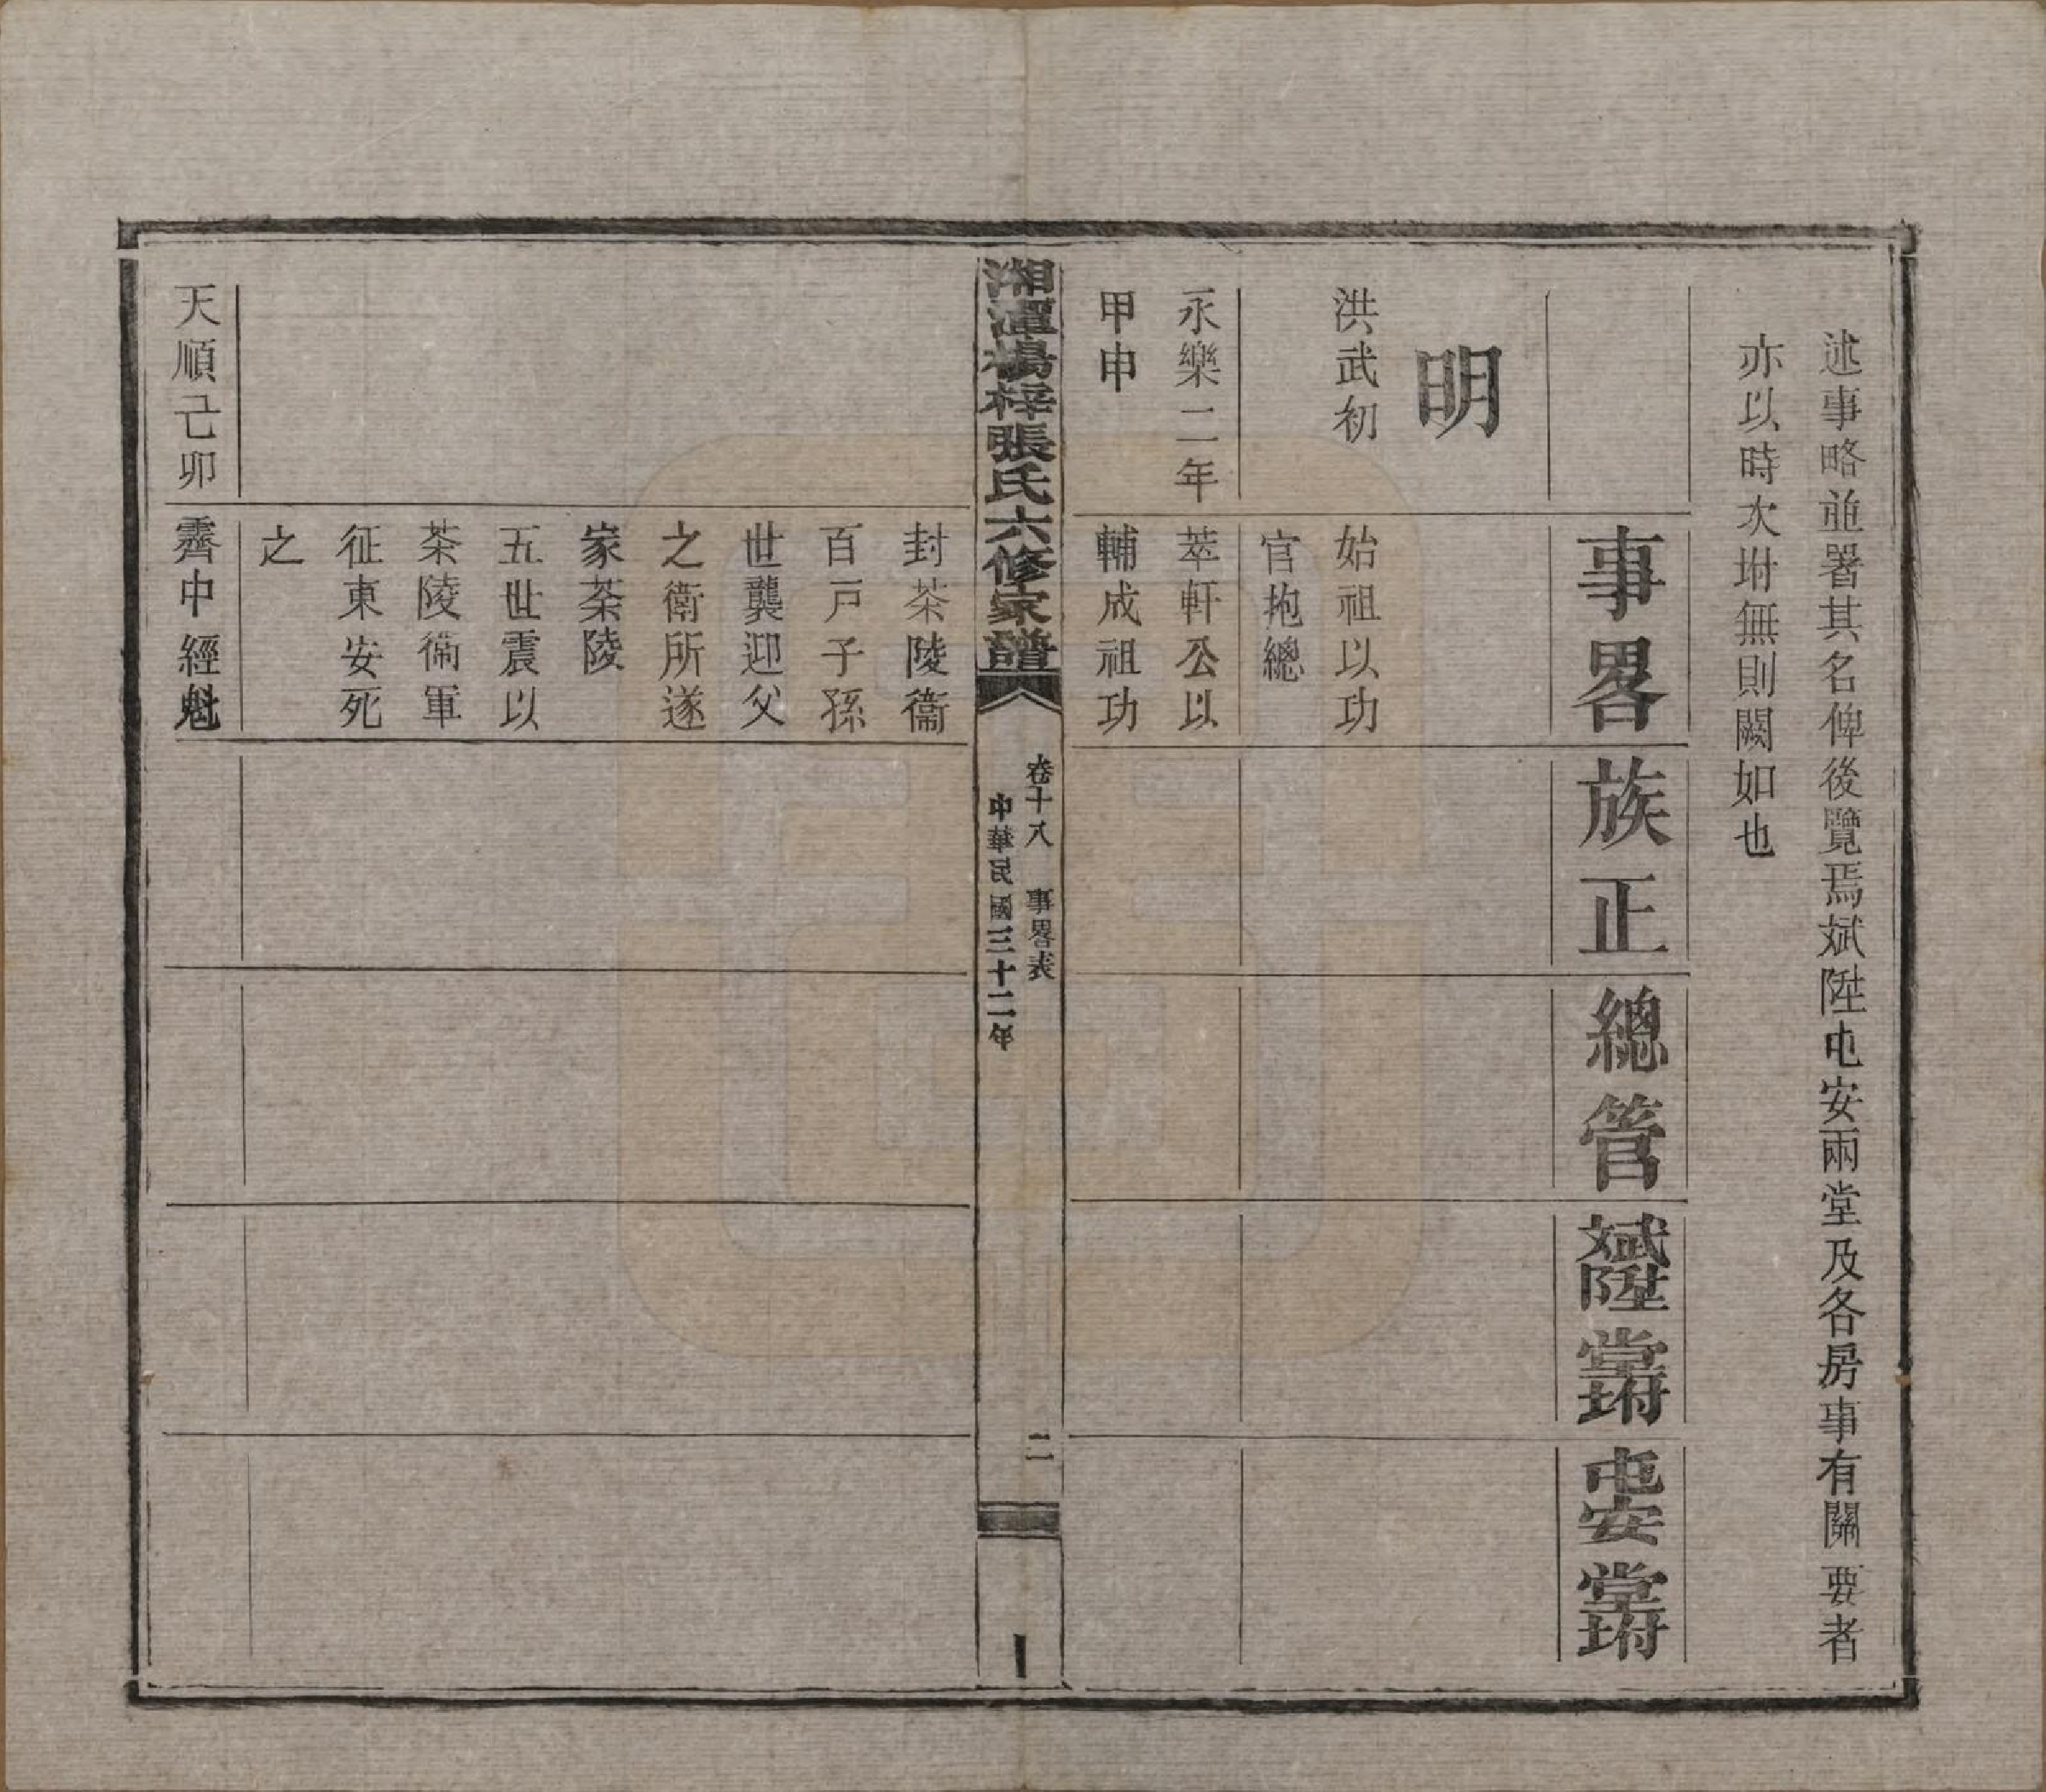 述事略並署其名俾後覽焉斌陞屯安兩堂及各房事有關要者
亦以時次坿無則闕如也
事畧
族正
總管
斌陞堂坿
屯安堂坿
明
洪武初
始祖以功
官抱總
永樂二年
甲申
萃軒公以
輔成祖功
湘潭楊梓張氏六修家譜
卷十八 事畧表
中華民國三十二年
二
封茶陵衞
百戸子孫
世襲迎父
之衞所遂
家茶陵
五世震以
茶陵衞軍
征東安死
之
天順己卯
霽中經魁